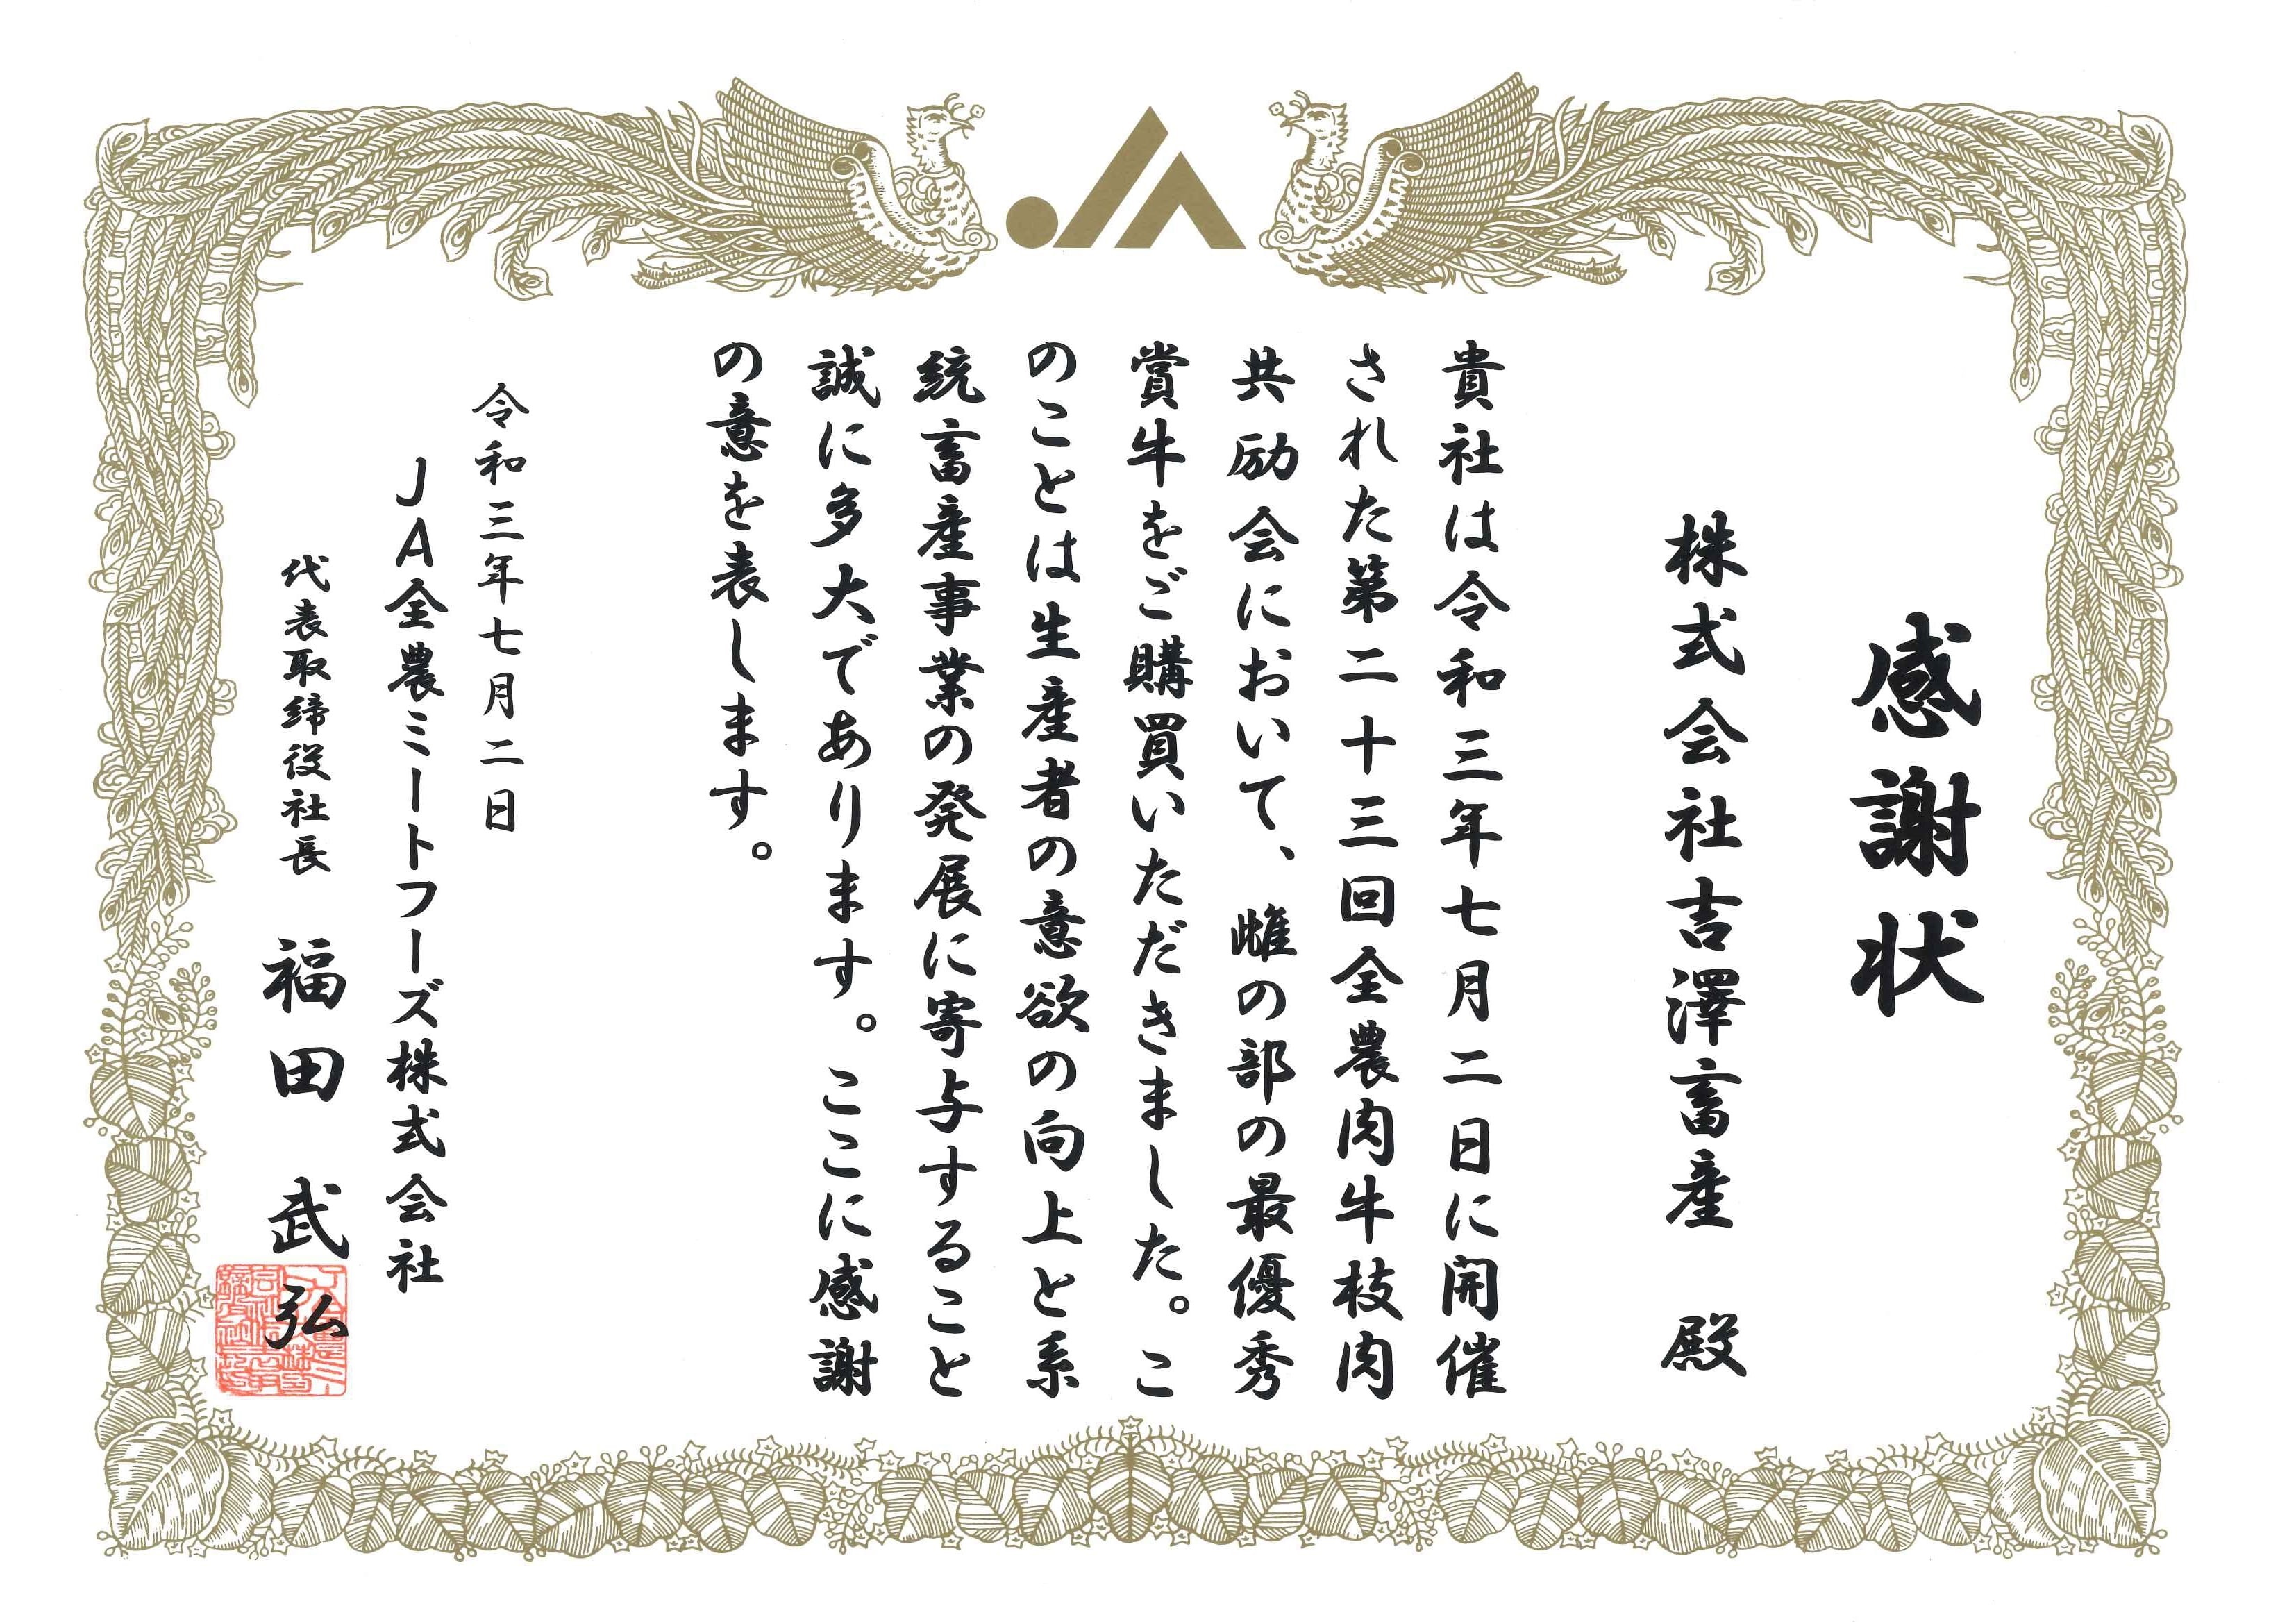 感謝状
株式会社吉澤畜産 殿
貴社は令和三年七月二日に開催
された第二十三回全農肉牛枝肉
共励会において、雌の部の最優秀
賞牛をご購買いただきました。こ
のことは生産者の意欲の向上と系
統畜産事業の発展に寄与すること
誠に多大であります。ここに感謝
の意を表します。
令和三年七月二日
JA全農ミートフーズ株式会社
代表取締役社長 福田 武弘